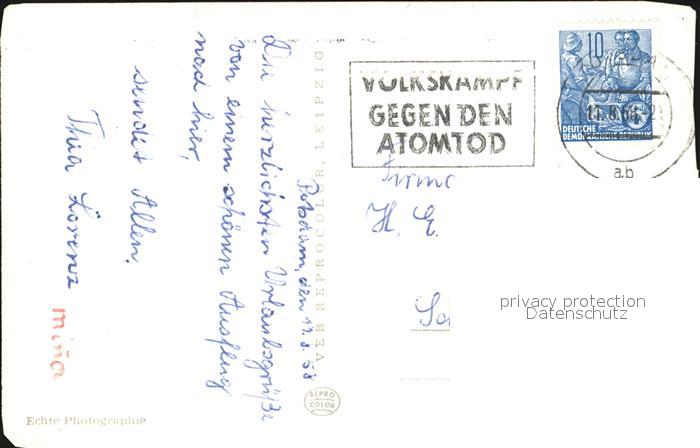 Potsdam, den 11.8.58
Die herzlichsten Urlaubsgrüße
von einem schönen Ausflug
nach hier,
sendet Allen.
Thea Lorenz
miña
VEB REPROCOLOR, LEIPZIG
REPRO
COLOR
Echte Photographie
VOLKSKAMPF
GEGEN DEN
ATOMTOD
10
DEUTSCHE
DEMOKRATISCHE REPUBLIK
ab
Firma
H. G.
privacy protection
Datenschutz